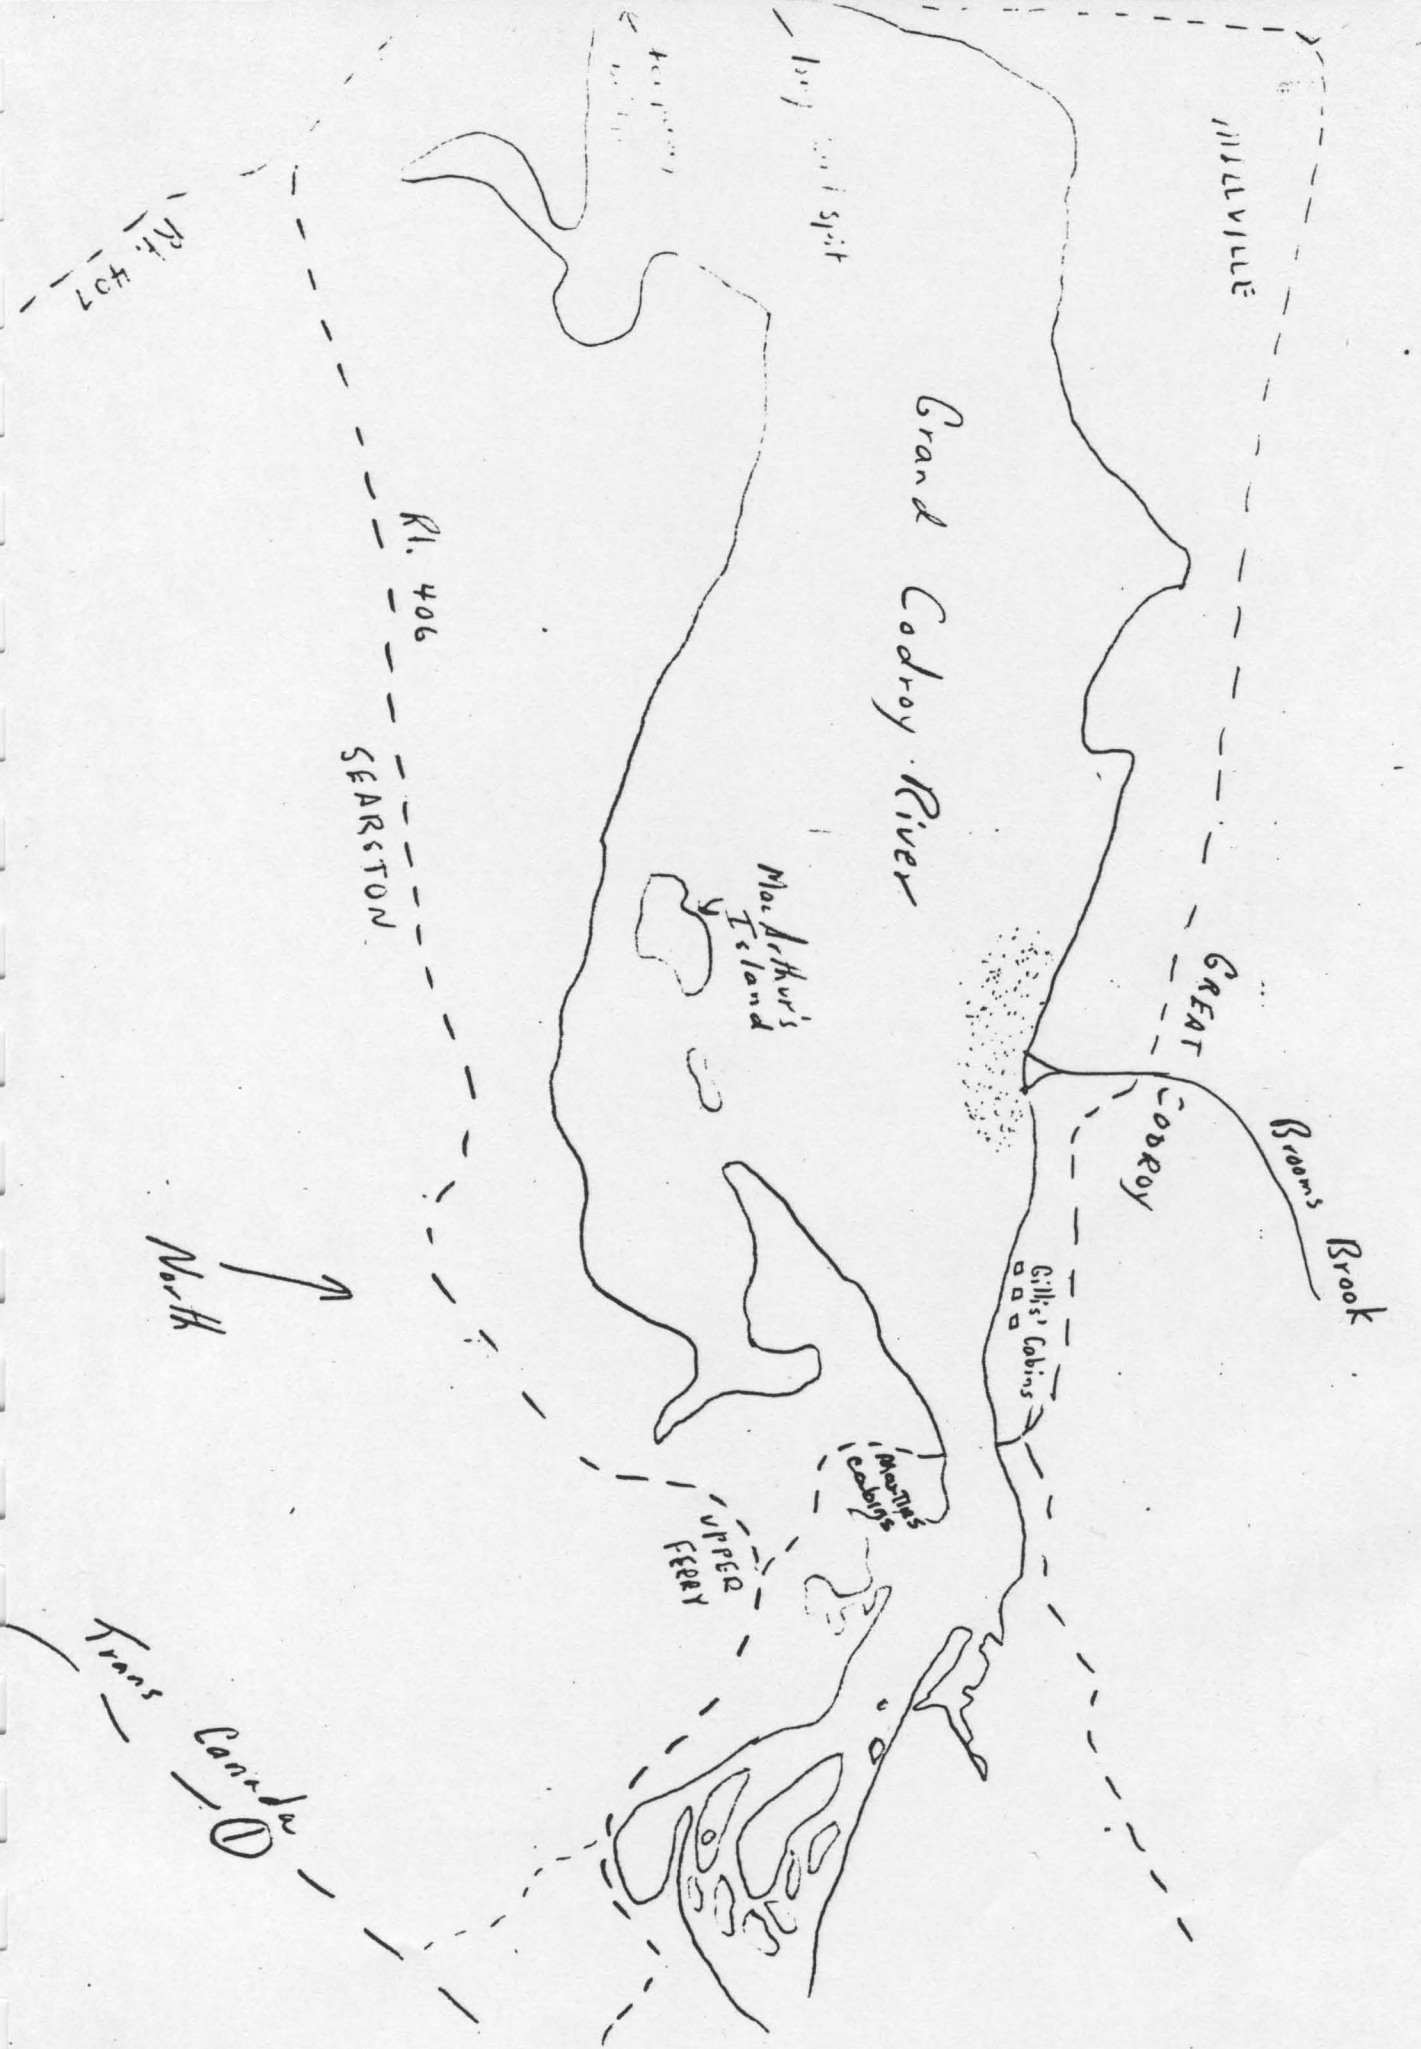 MILLVILLE
spit
Rt. 407
Grand Codroy River
Rt. 406
SEARSTON
MacArthur's
Island
GREAT CODROY
Brooms Brook
Gillis' Cabins
North
Martin's
cabins
UPPER
FERRY
Trans Canada
1